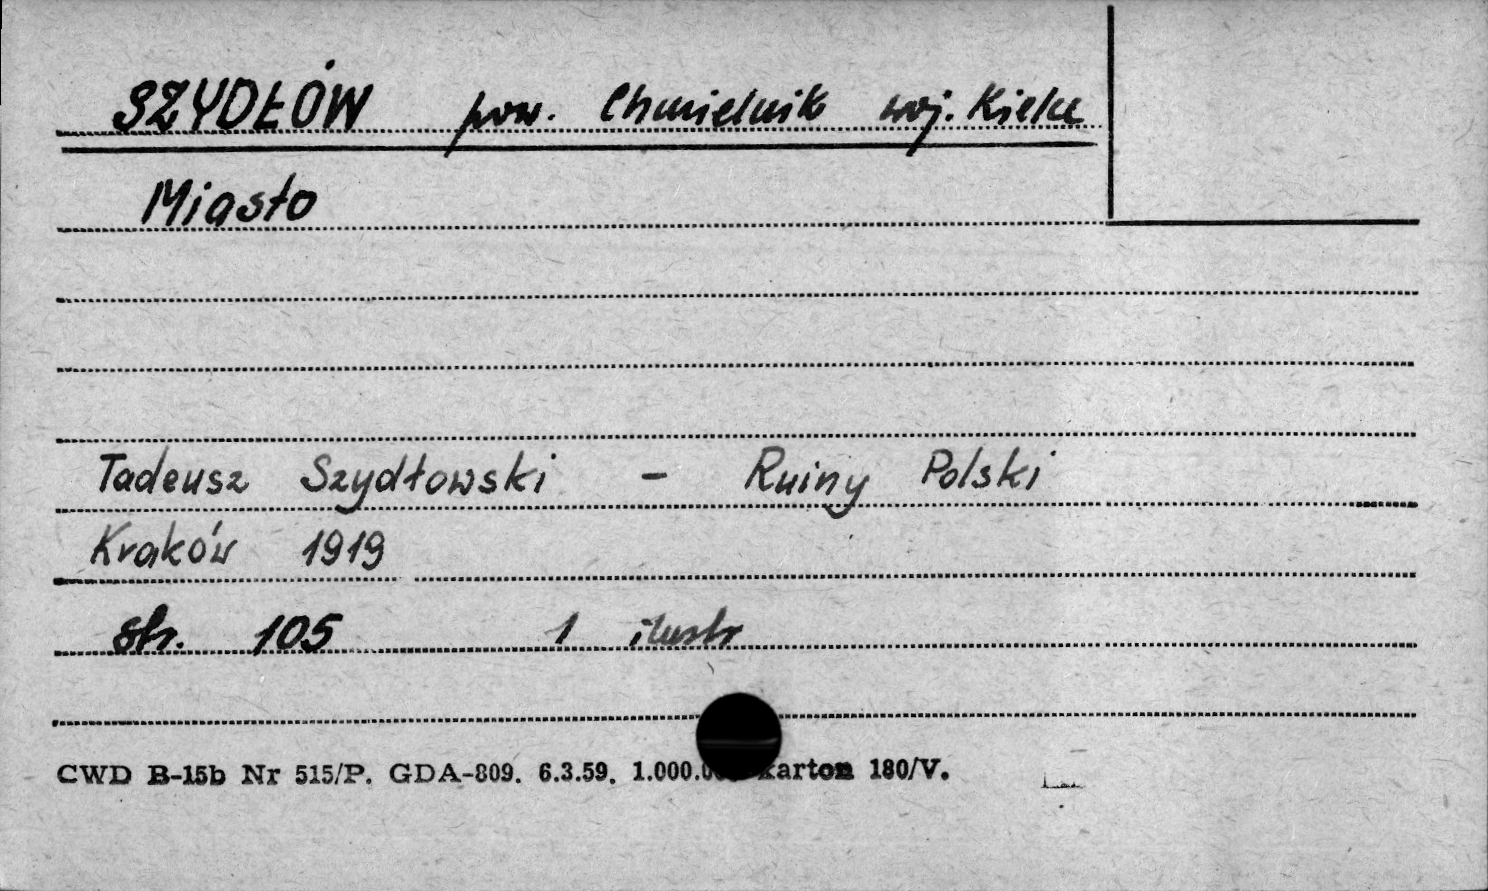 SZYDŁÓW pow. Chmielnik woj. Kielce
Miasto
Tadeusz Szydłowski - Ruiny Polski
Kraków 1919
str. 105 1 ilustr
CWD B-15b Nr 515/P. GDA-809. 6.3.59. karton 180/V.